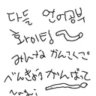 다들 언어공부
화이팅
みんな かんこくご
べんきょう がんばって